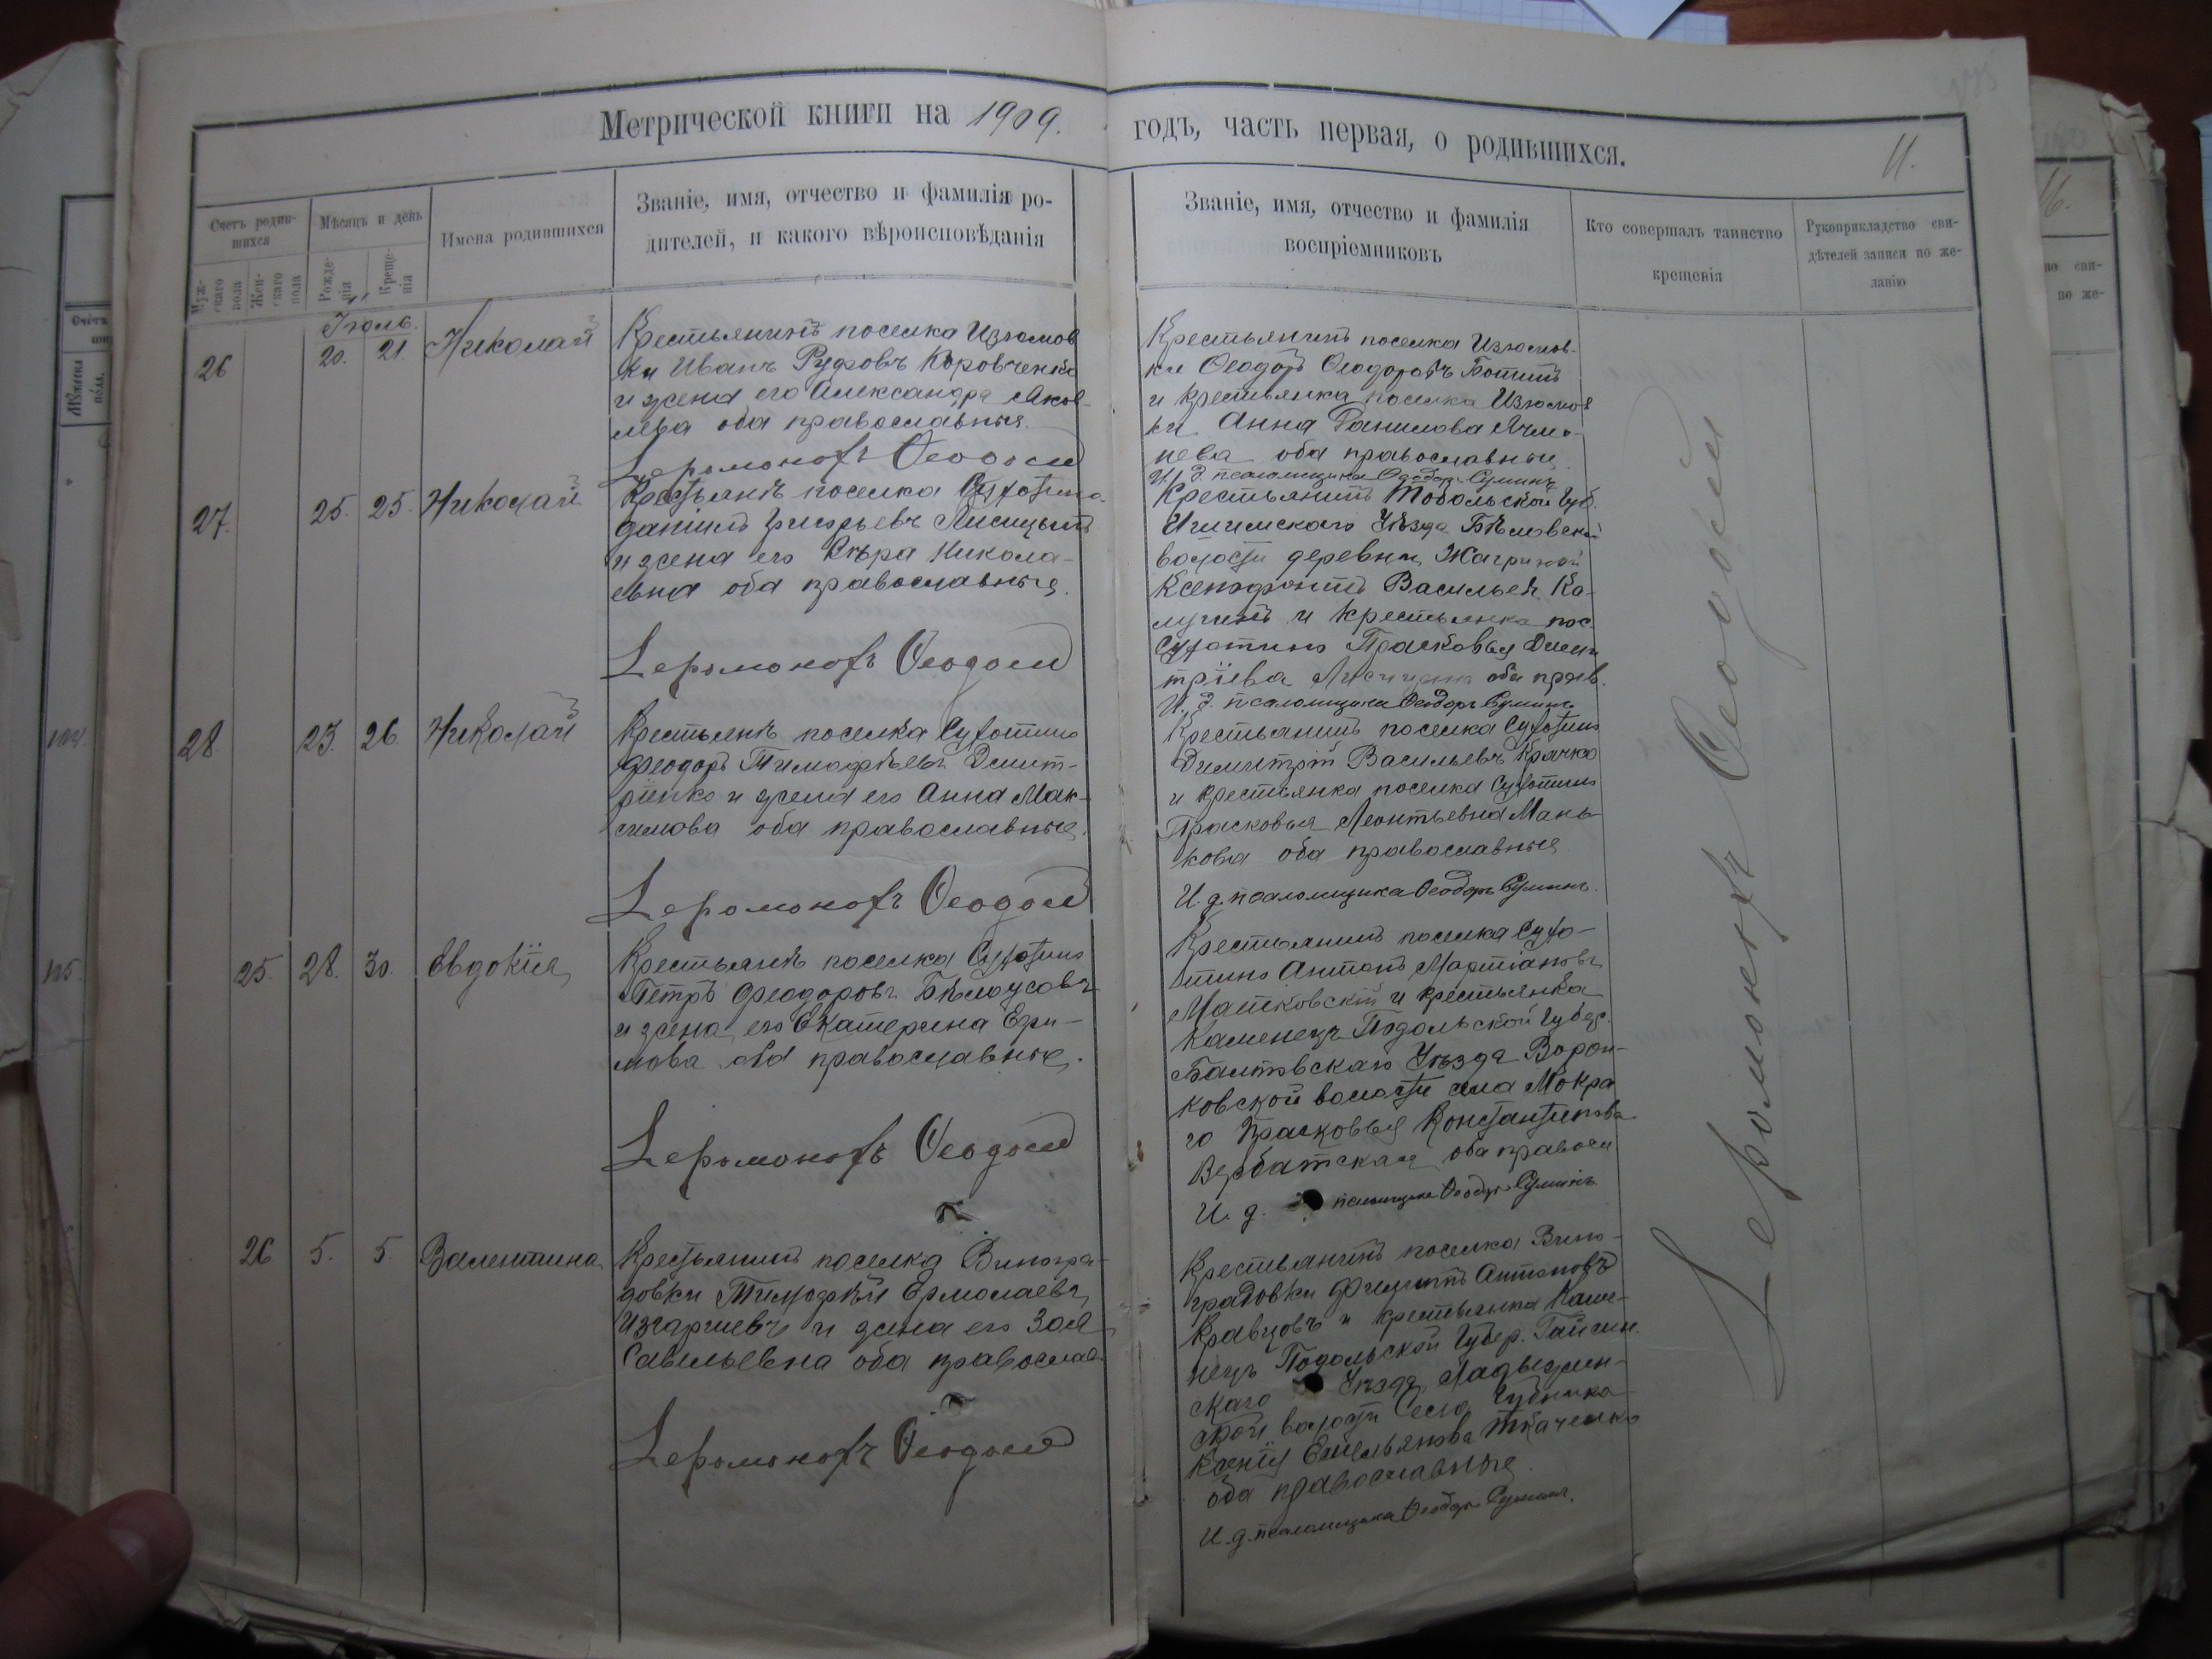 Метрической книги на 1909.
годъ, часть первая, о родившихся.
11.
Счетъ родив-
шихся
Мѣсяцъ и день
Имена родившихся
Званіе, имя, отчество и фамилія ро-
дителей, и какого вѣроисповѣданія
Муж-
скаго
пола
Жен-
скаго
пола
Рожде-
нія
Креще-
нія
Званіе, имя, отчество и фамилія
воспріемниковъ
Кто совершалъ таинство
крещенія
Рукоприкладство сви-
дѣтелей записи по же-
ланію
Іюль.
26
20.
21
Николай
Крестьянинъ поселка Изюмов
ки Иванъ Руфовъ Коровченко
и жена его Александра Яков-
лева оба православные.
Іеромонахъ Ѳеодосій
Крестьянинъ поселка Изюмов-
ки Ѳеодоръ Ѳеодоровъ
и крестьянка поселка Изюмов
ки Анна Данилова
нева оба православные
И. д. псаломщика Ѳеодоръ Суминъ
27.
25.
25.
Николай
поселка Сухотино
Даніилъ Григорьевъ Лисицынъ
и жена его Вѣра Никола-
евна оба православные.
Іеромонахъ Ѳеодосій
Крестьянинъ Тобольской Губ.
Ишимскаго Уѣзда
волости деревни Жагриной
Ксенофонтъ Васильев. Ка-
лугинъ и крестьянка пос.
Сухотино Прасковья Дими
тріева оба прав.
И. д. псаломщика Ѳеодоръ Суминъ
28
23.
26.
Николай
поселка Сухотино
Ѳеодоръ Тимофѣевъ Дмит-
ріенко и жена его Анна Мак-
симова оба православные.
Іеромонахъ Ѳеодосій
Крестьянинъ поселка Сухотино
Димитрій Васильевъ Крячко
и крестьянка поселка Сухотино
Прасковья Леонтьевна Мань
кова оба православные
И. д. псаломщика Ѳеодоръ Суминъ.
25.
28.
30.
Евдокія
поселка Сухотино
Петръ Ѳеодоровъ Бѣлоусовъ
и жена его Екатерина Ефи-
мова оба православные.
Іеромонахъ Ѳеодосій
Крестьянинъ поселка Сухо-
тино Антонъ Мартіановъ
Матковскій и крестьянка
Каменецъ Подольской Губер.
Балтовскаго Уѣзда Ворон-
ковской волости села Мокра
го Прасковья Константинова
оба правосл.
И. д. псаломщика Ѳеодоръ Суминъ
26
5.
5.
Валентина
Крестьянинъ поселка Виногра-
довки Тимофѣй Ермолаевъ
и жена его Зоя
Савельевна оба православ.
Іеромонахъ Ѳеодосій
Крестьянинъ поселка Вино-
градовки Филиппъ Антоновъ
Кравцовъ и крестьянка Каме-
нецъ Подольской Губер. Гайсин.
скаго Уѣзда Ладыжин-
ской волости Села Губника
Ксенія Емельянова Ткаченко
оба православные.
И. д. псаломщика Ѳеодоръ Суминъ.
Іеромонахъ Ѳеодосій